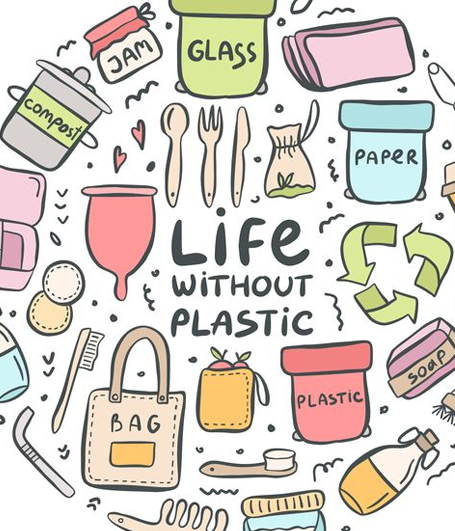 JAM
GLASS
COMPOST
PAPER
Life
WITHOUT
PLASTIC
SOAP
PLASTIC
BAG